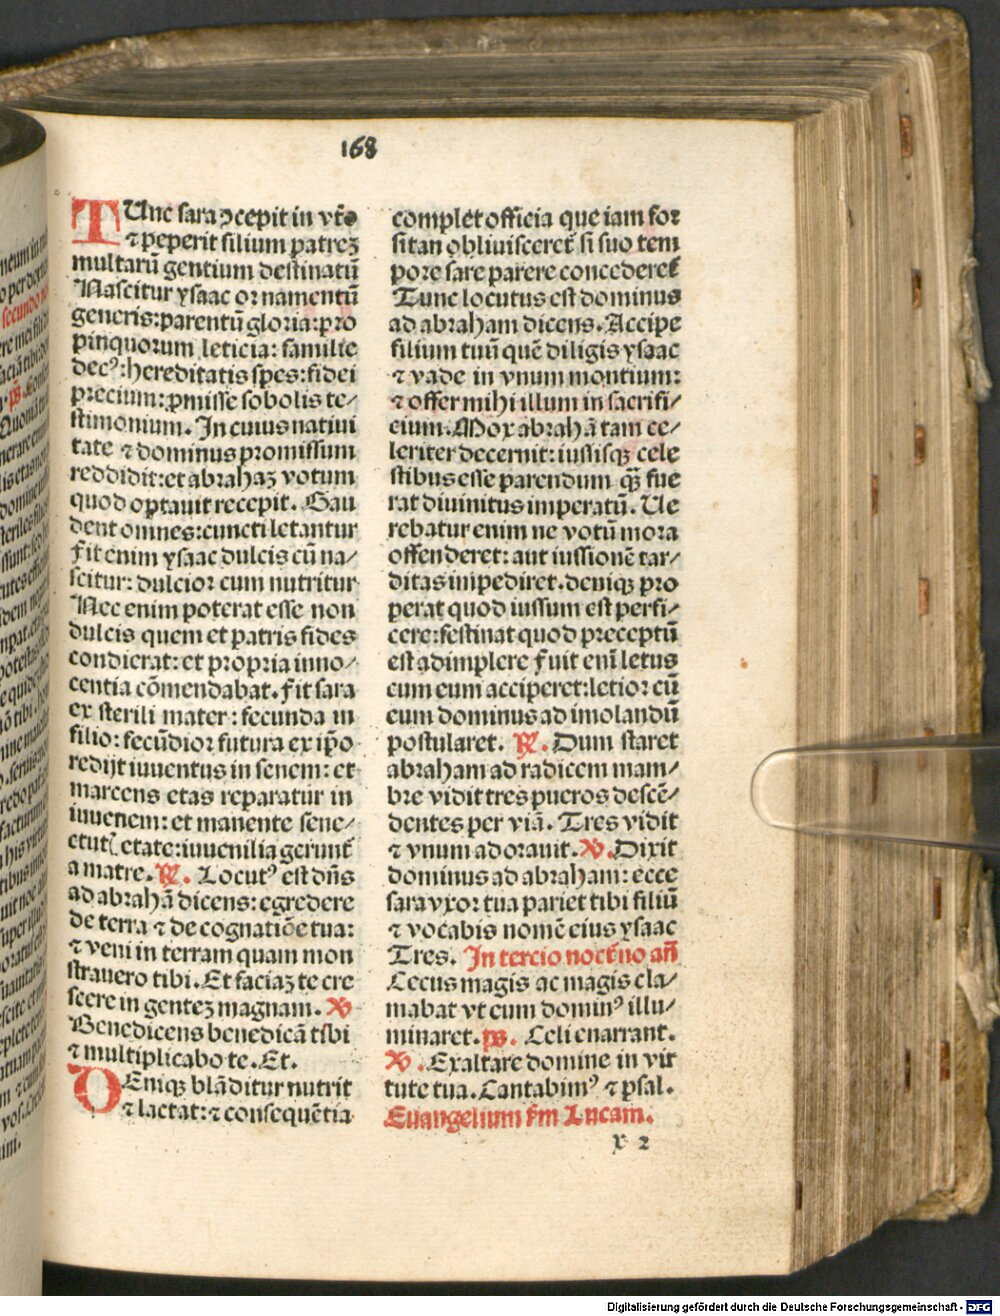 168
TUnc sara ꝯcepit in vt̄o
⁊ peperit filium patreꝫ
multarū gentium destinatū
Nascitur ysaac ornamentū
generis: parentū gloria: pro
pinquorum leticia: familie
decꝰ: hereditatis spes: fidei
precium: ꝓmisse sobolis te⸗
stimonium. In cuius natiui
tate ⁊ dominus promissum
reddidit: et abrahaꝫ votum
quod optauit recepit. Gau
dent omnes: cuncti letantur
Fit enim ysaac dulcis cū na⸗
scitur: dulcior cum nutritur
Nec enim poterat esse non
dulcis quem et patris fides
condierat: et propria inno⸗
centia cōmendabat. Fit sara
ex sterili mater: fecunda in
filio: fecūdior futura ex ip̄o
redijt iuuentus in senem: et
marcens etas reparatur in
iuuenem: et manente sene⸗
ctut[ etate: iuuenilia gerunt̄
a matre. ℟. Locutꝰ est dn̄s
ad abrahā dicens: egredere
de terra ⁊ de cognatiōe tua:
⁊ veni in terram quam mon
strauero tibi. Et faciaꝫ te cre
scere in genteꝫ magnam. ℣
Benedicens benedicā tibi
⁊ multiplicabo te. Et.
DEniqꝫ blāditur nutrit
⁊ lactat: ⁊ consequētia
complet officia que iam for
sitan obliuisceret̄ si suo tem
pore sare parere concederet̄
Tunc locutus est dominus
ad abraham dicens. Accipe
filium tuū quē diligis ysaac
⁊ vade in vnum montium:
⁊ offer mihi illum in sacrifi⸗
cium. Mox abrahā tam ce⸗
leriter decernit: iussisqꝫ cele
stibus esse parendum qꝫ̄ fue
rat diuinitus imperatū. Ue
rebatur enim ne votū mora
offenderet: aut iussionē tar⸗
ditas impediret. deniqꝫ pro
perat quod iussum est perfi⸗
cere: festinat quod preceptū
est adimplere Fuit eni̅ letus
cum eum acciperet: letior cū
eum dominus ad imolandū
postularet. ℟. Dum staret
abraham ad radicem mam⸗
bre vidit tres pueros descē⸗
dentes per viā. Tres vidit
⁊ vnum adorauit. ℣. Dixit
dominus ad abraham: ecce
sara vxor tua pariet tibi filiū
⁊ vocabis nomē eius ysaac
Tres. In tercio noct̄no an̄
Cecus magis ac magis cla⸗
mabat vt eum dominꝰ illu⸗
minaret. ps. Celi enarrant.
℣. Exaltare domine in vir
tute tua. Cantabimꝰ ⁊ psal.
Euangelium s̄m Lucam.
x 2
Digitalisierung gefördert durch die Deutsche Forschungsgemeinschaft - DFG